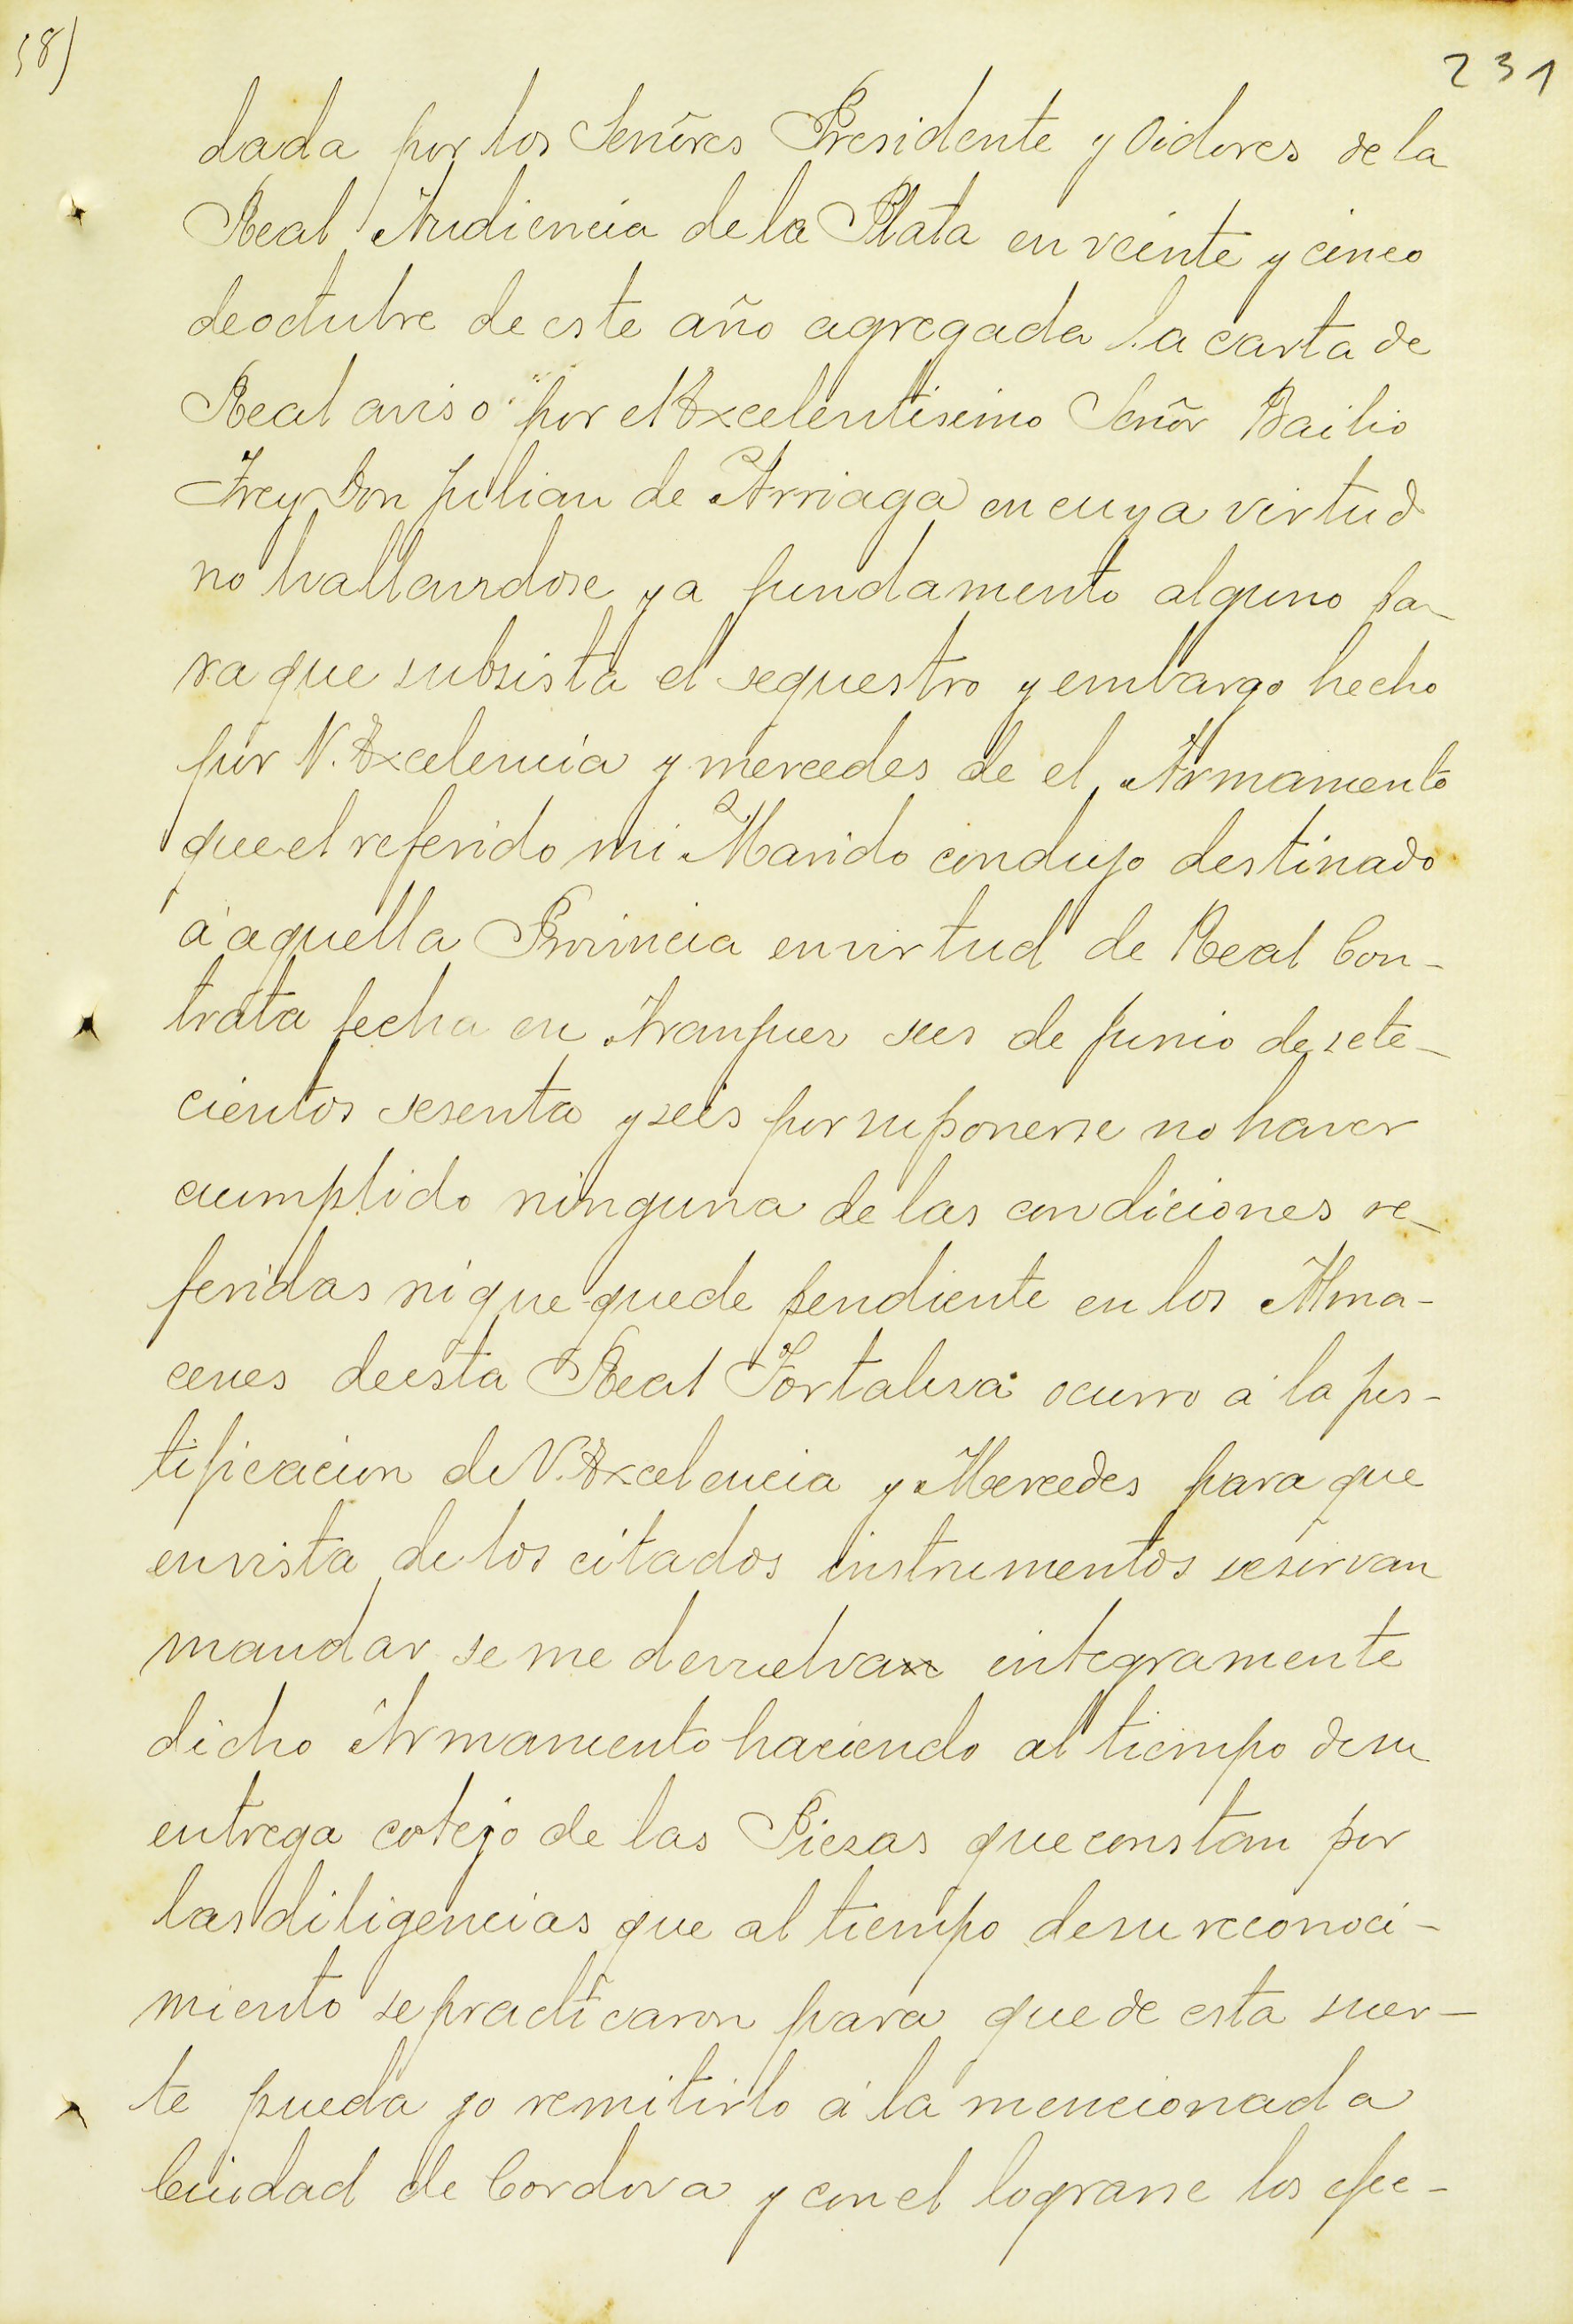 58)
231
dada por los Señores Presidente y Oidores de la
Real Audiencia de la Plata en veinte y cinco
de octubre de este año agregada la carta de
Real aviso por el Excelentisimo Señor Bailio
Frey Don Julian de Arriaga en cuya virtud
no hallandose ya fundamento alguno pa-
ra que subsista el sequestro y embargo hecho
por V. Excelencia y mercedes de el Armamento
que el referido mi Marido condujo destinado
á aquella Provincia en virtud de Real Con-
trata fecha en Aranjuez seis de Junio de sete-
cientos sesenta y seis por suponerse no haver
cumplido ninguna de las condiciones re-
feridas ni que quede pendiente en los Alma-
cenes de esta Real Fortalesa ocurro á la jus-
tificacion de V. Excelencia y Mercedes para que
en vista de los citados instrumentos se sirvan
mandar se me devuelvan integramente
dicho Armamento haciendo al tiempo de su
entrega cotejo de las Piesas que constan por
las diligencias que al tiempo de su reconoci-
miento se practicaron para que de esta suer-
te pueda yo remitirlo á la mencionada
Ciudad de Cordova y con el lograrse los efec-